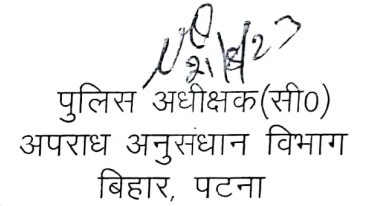 पुलिस अधीक्षक(सी0)
अपराध अनुसंधान विभाग
बिहार, पटना